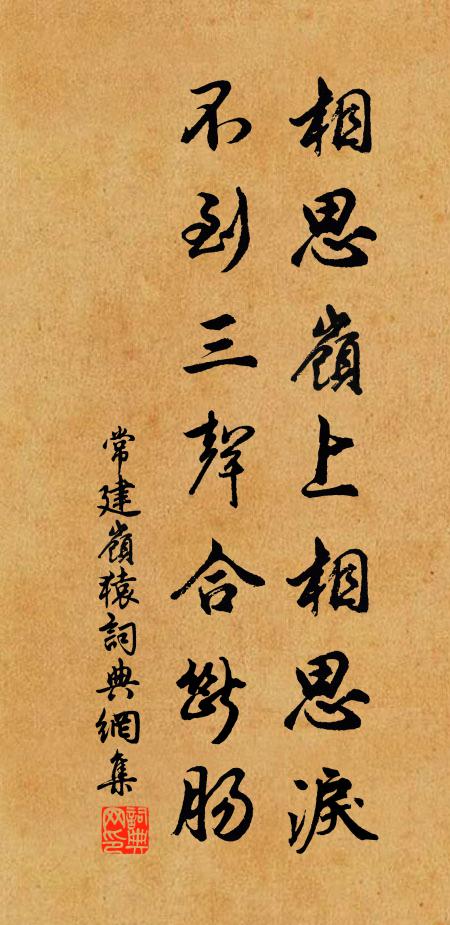 相思嶺上相思淚
不到三聲合斷腸
常建嶺猿詞典網集
詞典網印